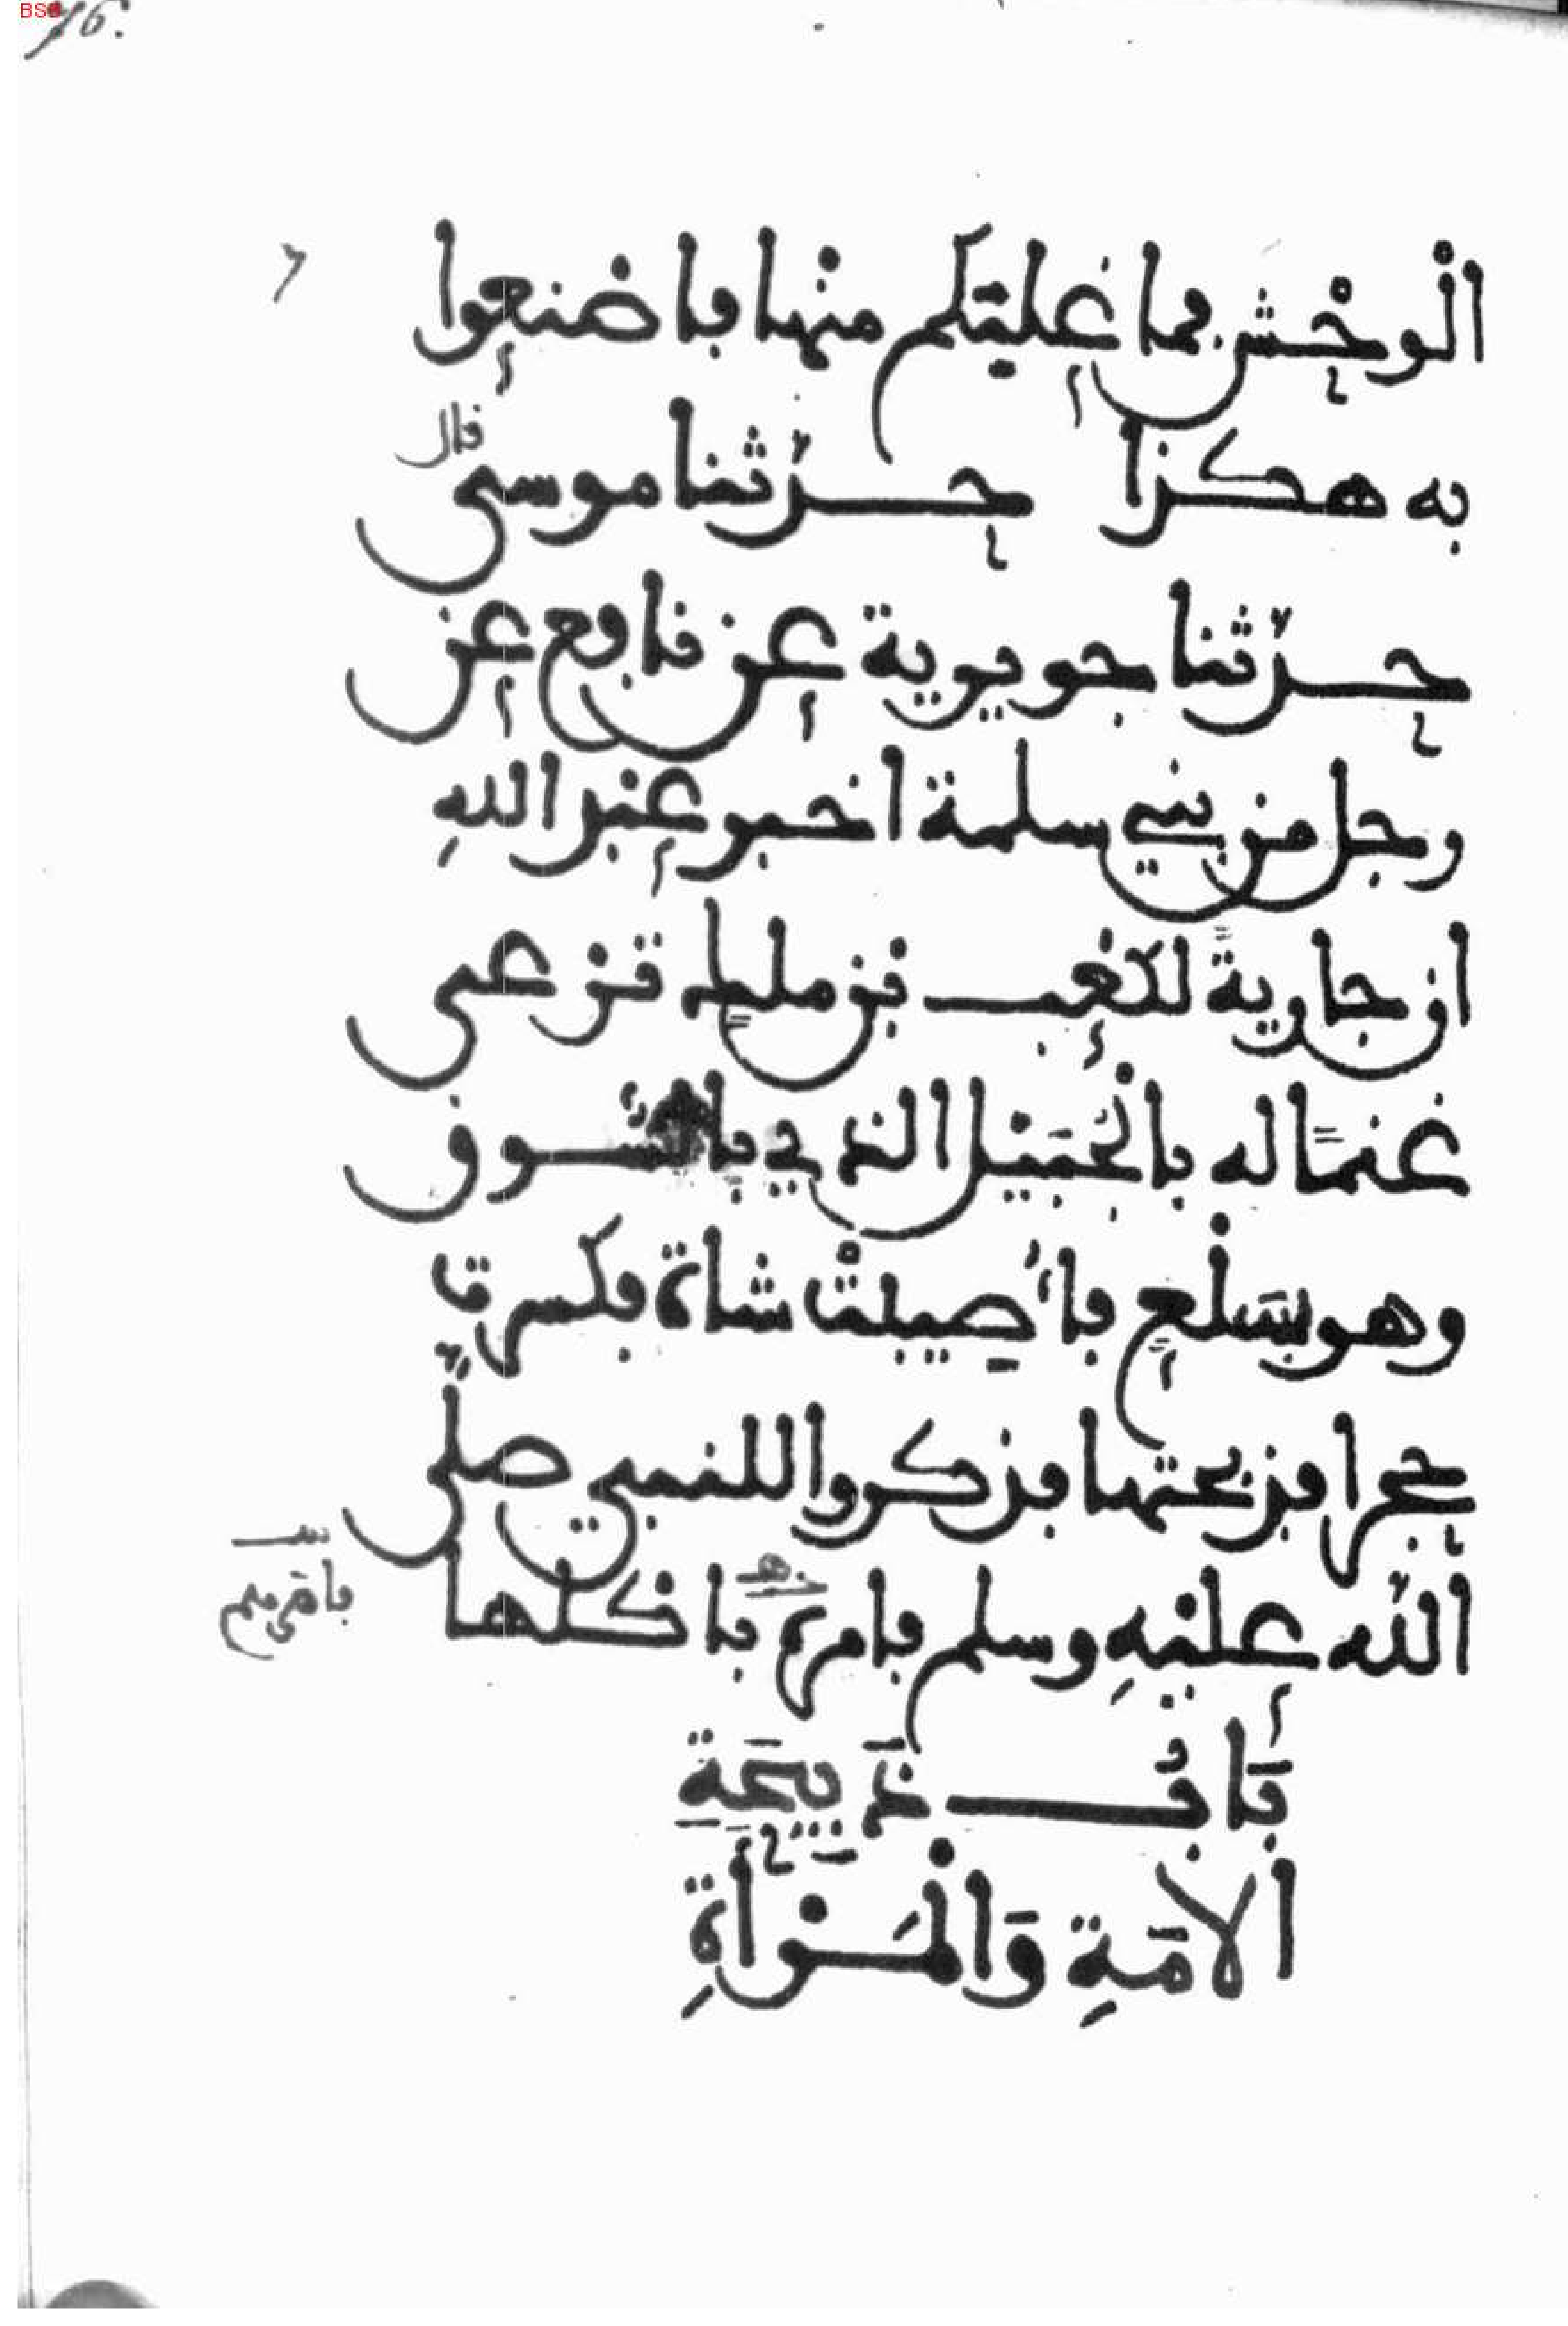 76.
الْوحْش فما غلبكم منها فاصْنعوا
به هكذا حدّثنا موسى قال
حدّثنا جويرية عن نافع عن
رجل من بني سلمة اخبر عبد الله
ان جاريةً لكعب بن ملكٍ ترعى
غنمًا له بالْجُبَيْل الذي بالسّوق
وهو بسَلْعٍ فأُصيبتْ شاة فكسرت
حجرا فذبحتها فذكروا للنبي صلّى
اللّه عليْهِ وسلم فامره باكلها
فامرهم
بَابُ ذَبِيحَةِ
الأمَةِ وَالْمَرْأَةِ